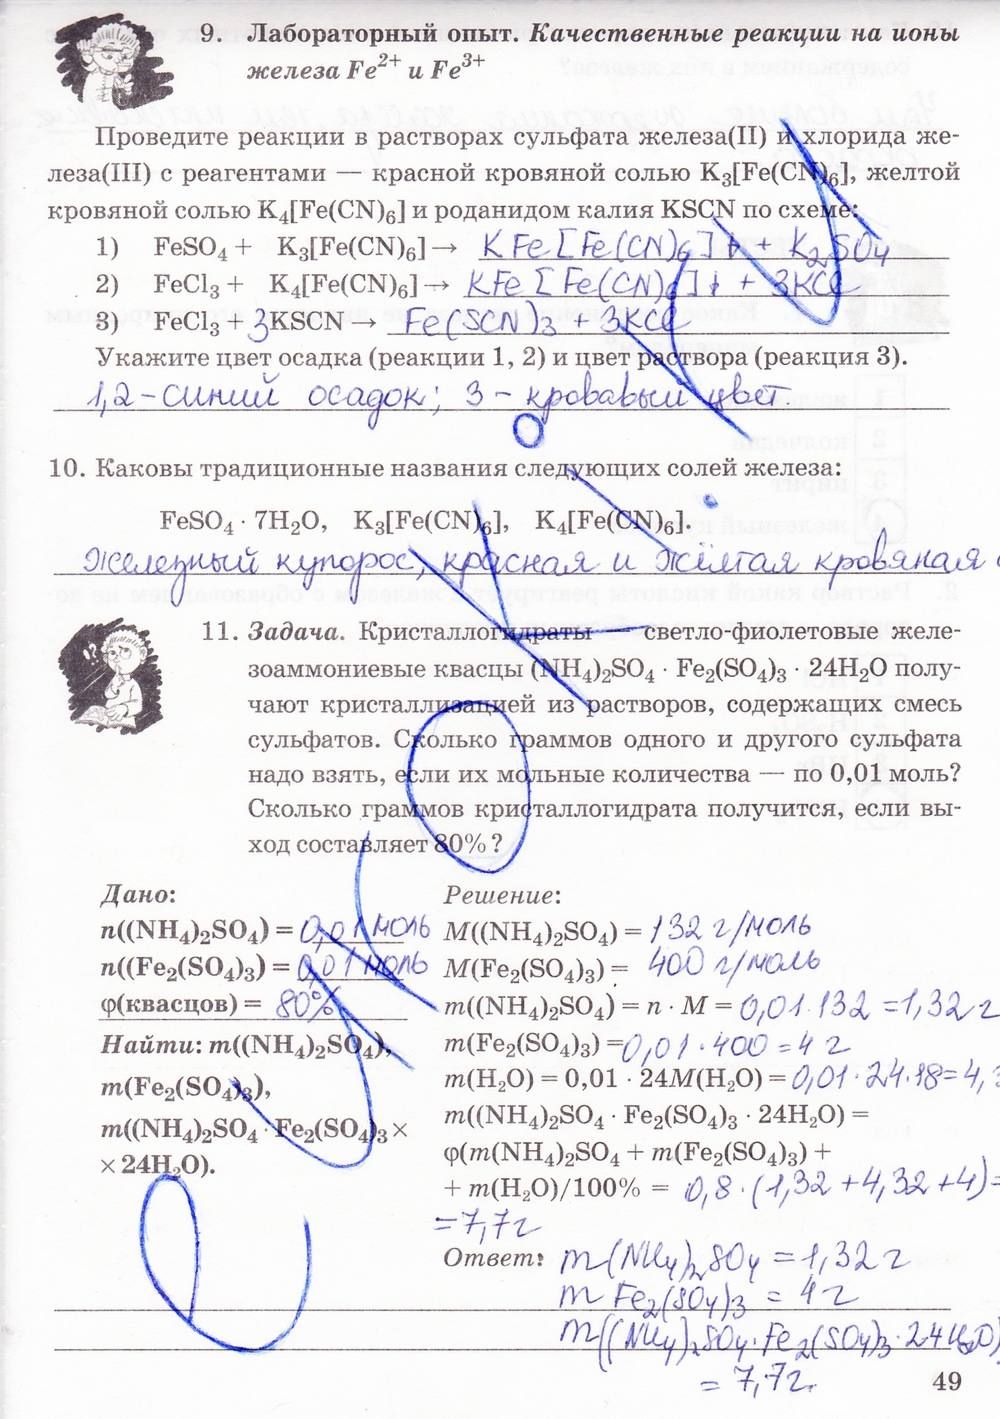 9. Лабораторный опыт. Качественные реакции на ионы
железа Fe²⁺ и Fe³⁺
Проведите реакции в растворах сульфата железа(II) и хлорида же-
леза(III) с реагентами — красной кровяной солью K₃[Fe(CN)₆], желтой
кровяной солью K₄[Fe(CN)₆] и роданидом калия KSCN по схеме:
1) FeSO₄ + K₃[Fe(CN)₆] → KFe[Fe(CN)₆]↓ + K₂SO₄
2) FeCl₃ + K₄[Fe(CN)₆] → KFe[Fe(CN)₆]↓ + 3KCl
3) FeCl₃ + 3KSCN → Fe(SCN)₃ + 3KCl
Укажите цвет осадка (реакции 1, 2) и цвет раствора (реакция 3).
1,2 – синий осадок; 3 – кровавый цвет.
10. Каковы традиционные названия следующих солей железа:
FeSO₄ · 7H₂O, K₃[Fe(CN)₆], K₄[Fe(CN)₆].
Железный купорос, красная и жёлтая кровяная
11. Задача. Кристаллогидраты — светло-фиолетовые желе-
зоаммониевые квасцы (NH₄)₂SO₄ · Fe₂(SO₄)₃ · 24H₂O полу-
чают кристаллизацией из растворов, содержащих смесь
сульфатов. Сколько граммов одного и другого сульфата
надо взять, если их мольные количества — по 0,01 моль?
Сколько граммов кристаллогидрата получится, если вы-
ход составляет 80% ?
Дано:
n((NH₄)₂SO₄) = 0,01 моль
n((Fe₂(SO₄)₃) = 0,01 моль
φ(квасцов) = 80%
Найти: m((NH₄)₂SO₄),
m(Fe₂(SO₄)₃),
m((NH₄)₂SO₄ · Fe₂(SO₄)₃ ×
× 24H₂O).
Решение:
M((NH₄)₂SO₄) = 132 г/моль
M(Fe₂(SO₄)₃) = 400 г/моль
m((NH₄)₂SO₄) = n · M = 0,01·132 = 1,32 г
m(Fe₂(SO₄)₃) = 0,01 · 400 = 4 г
m(H₂O) = 0,01 · 24M(H₂O) = 0,01·24·18 = 4,3
m((NH₄)₂SO₄ · Fe₂(SO₄)₃ · 24H₂O) =
φ(m(NH₄)₂SO₄ + m(Fe₂(SO₄)₃) +
+ m(H₂O)/100% = 0,8 · (1,32 + 4,32 + 4) =
= 7,7 г
Ответ: m(NH₄)₂SO₄ = 1,32 г
m Fe₂(SO₄)₃ = 4 г
m((NH₄)₂SO₄·Fe₂(SO₄)₃·24H₂O)
= 7,7 г.
49
eurokі.org